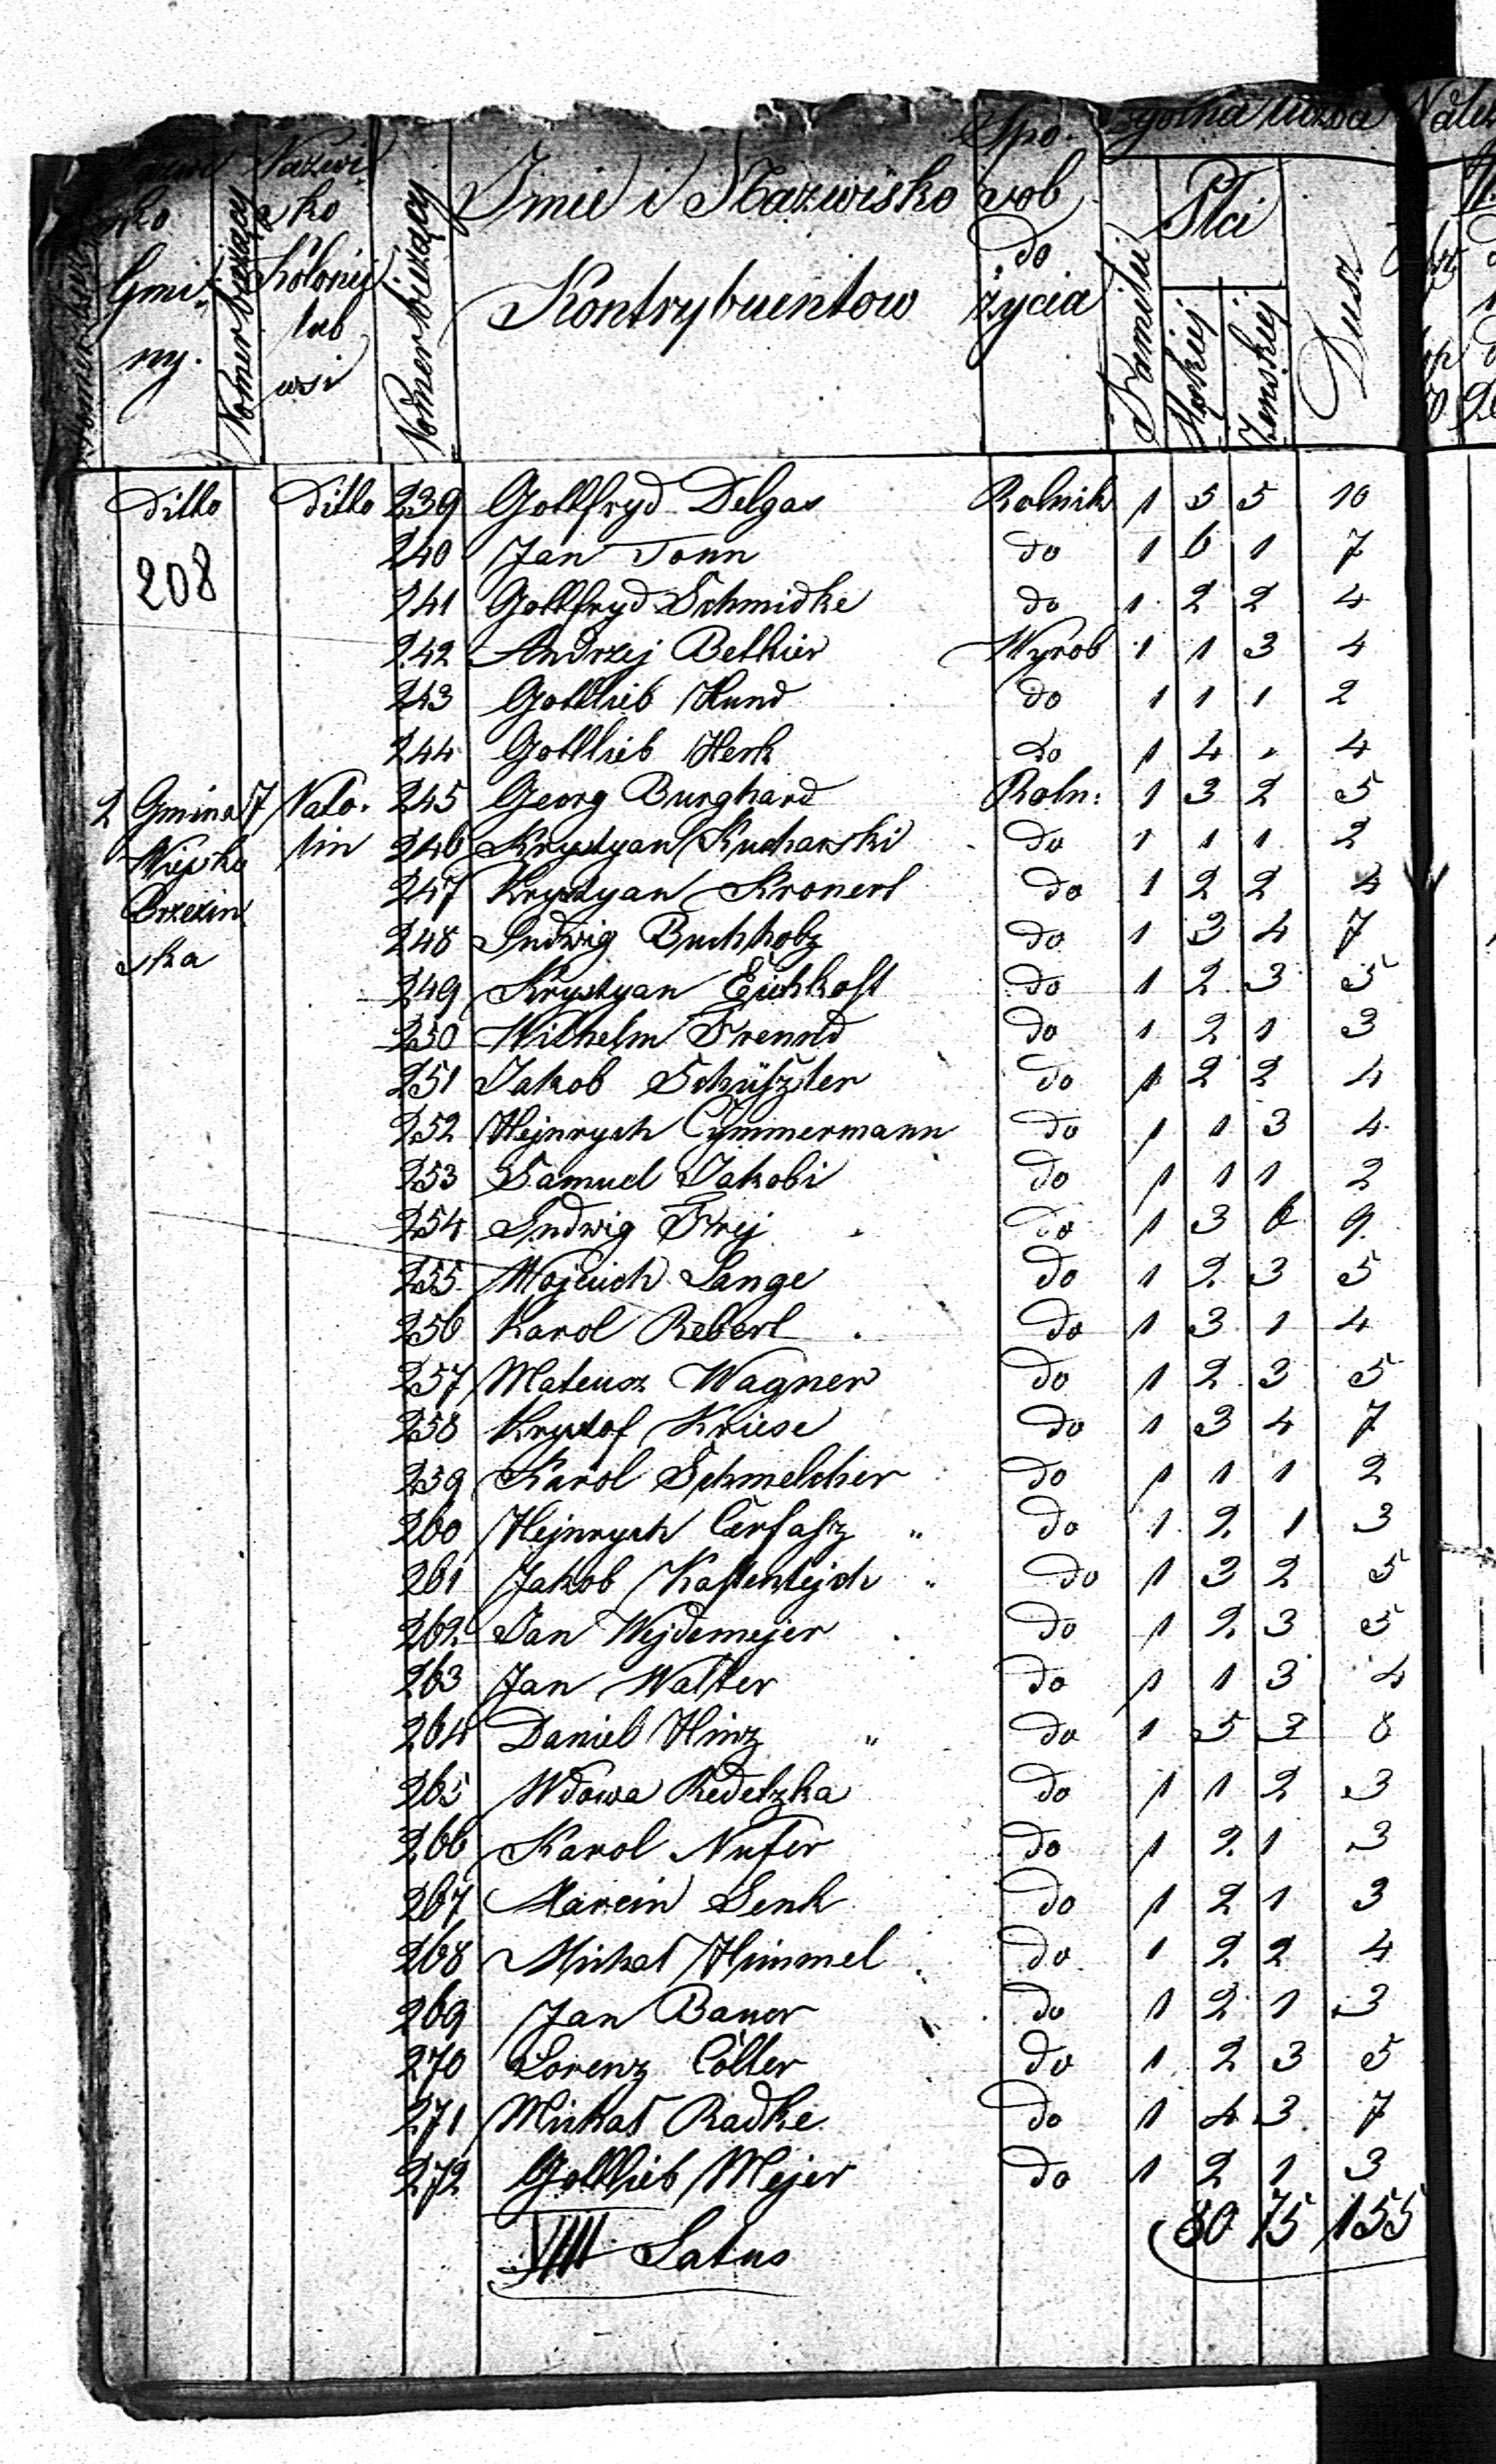 Spo- gólna liczba
Nazwi
sko
Gmi-
ny.
Nomer bieżący
Nazwi
sko
Kolonij
lub
wsi
Nomer bieżący
Imie i Nazwisko
Kontrybuentow
sob
do
życia
Familii
Płci
Męskiej
Żenskiej
Dusz
ditto ditto 239 Gottfryd Delgas Rolnik 1 5 5 10
208 240 Jan Tonn do 1 6 1 7
241 Gottfryd Schmidke do 1 2 2 4
242 Andrzej Bethier Wyrob 1 1 3 4
243 Gottlieb Hund do 1 1 1 2
244 Gottlieb Herk do 1 4 . 4
2 Gmina 7 Nato- 245 Georg Burghard Roln: 1 3 2 5
Wiejska lin 246 Krystyan Kucharski do 1 1 1 2
Brzezin 247 Krystyan Kronert do 1 2 2 4
ska 248 Ludwig Buchholz do 1 3 4 7
249 Krystyan Eichhost do 1 2 3 5
250 Wilhelm Freund do 1 2 1 3
251 Jakob Schüszler do 1 2 2 4
252 Hejnrych Cymmermann do 1 1 3 4
253 Samuel Jakobi do 1 1 1 2
254 Ludwig Frej do 1 3 6 9
255 Wojciech Lange do 1 2 3 5
256 Karol Rebert do 1 3 1 4
257 Mateusz Wagner do 1 2 3 5
258 Krystof Kriese do 1 3 4 7
259 Karol Schmelcher do 1 1 1 2
260 Hejnrych Cerfasz " do 1 2 1 3
261 Jakob Kastentejch " do 1 3 2 5
262 Jan Wejdemejer do 1 2 3 5
263 Jan Walter do 1 1 3 4
264 Daniel Hinz " do 1 5 3 8
265 Wdowa Redetzka do 1 1 2 3
266 Karol Nufer do 1 2 1 3
267 Marcin Senk do 1 2 1 3
268 Michał Himmel do 1 2 2 4
269 Jan Bauer do 1 2 1 3
270 Lorenz Cölter do 1 2 3 5
271 Michał Radke do 1 4 3 7
272 Gottlieb Mejer do 1 2 1 3
VIII Latus 80 75 155